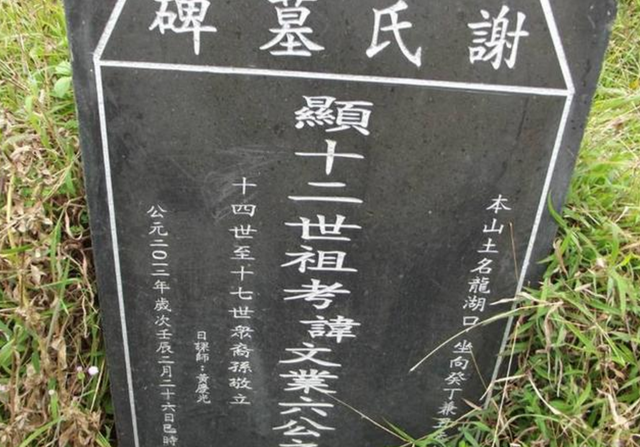 謝氏墓碑
本山土名龍湖口 坐向癸丁兼丑
顯十二世祖考諱文業六公
十四世至十七世衆裔孫敬立
日課師：黃慶光
公元二〇一二年歲次壬辰二月二十六日巳時